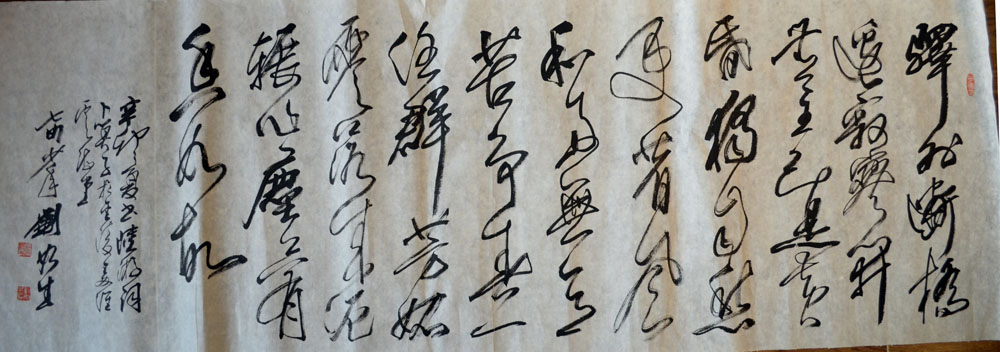 驛外斷橋
邊寂寞開
無主已是黃
昏獨自愁
更著風
和雨無意
苦爭春一
任群芳妬
零落成泥
輾作塵只有
香如故
辛卯之夏書陸游詞
卜算子
劉生